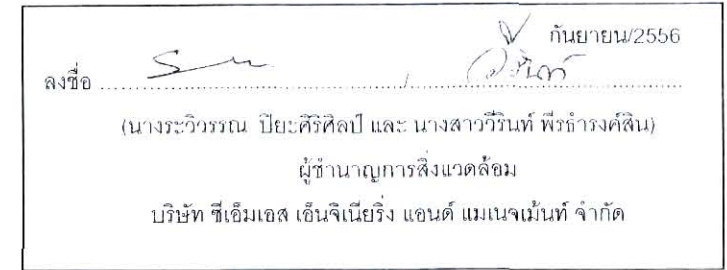 กันยายน/2556
ลงชื่อ ........................................./.........................................
(นางระวิวรรณ ปิยะศิริศิลป์ และ นางสาววีรินท์ พีรธำรงค์สิน)
ผู้ชำนาญการสิ่งแวดล้อม
บริษัท ซีเอ็มเอส เอ็นจิเนียริ่ง แอนด์ แมเนจเม้นท์ จำกัด